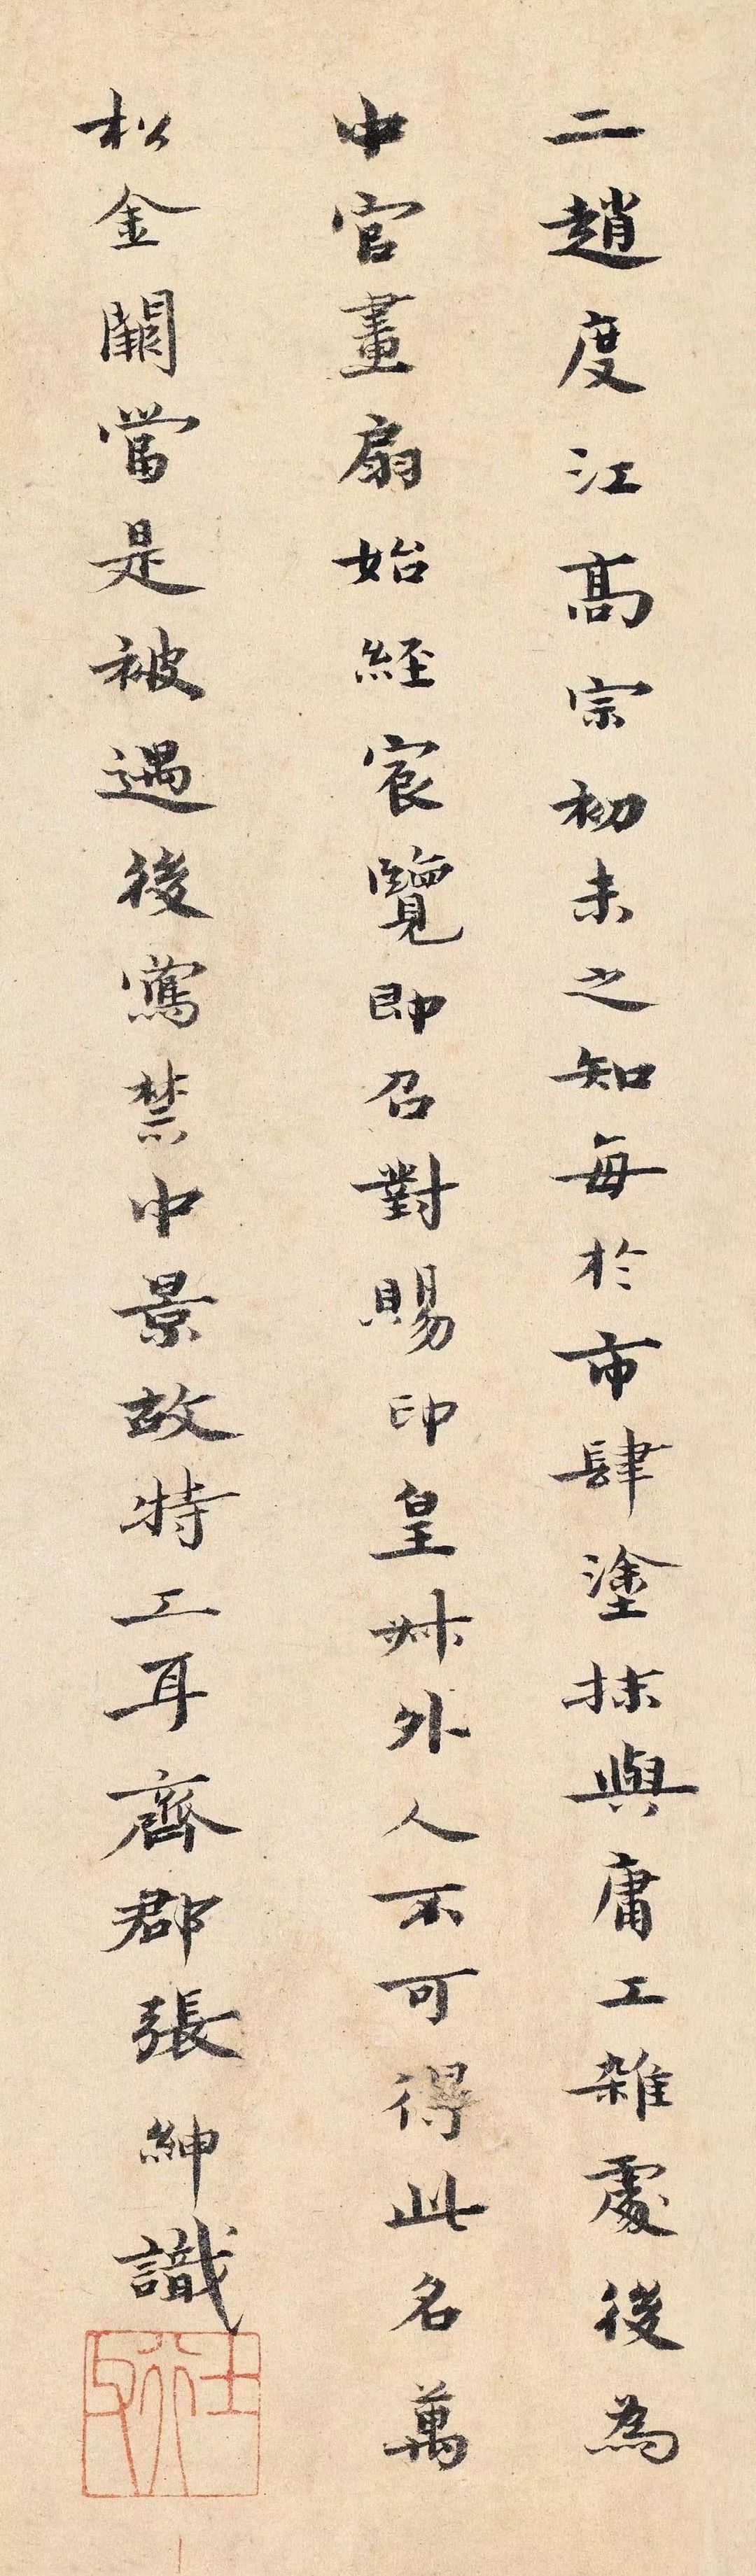 二趙度江高宗初未之知每於市肆塗抹與庸工雜處後為
中官畫扇始經宸覽即召對賜印皇叔外人不可得此名萬
松金闕當是被遇後寫禁中景故特工耳齊郡張紳識